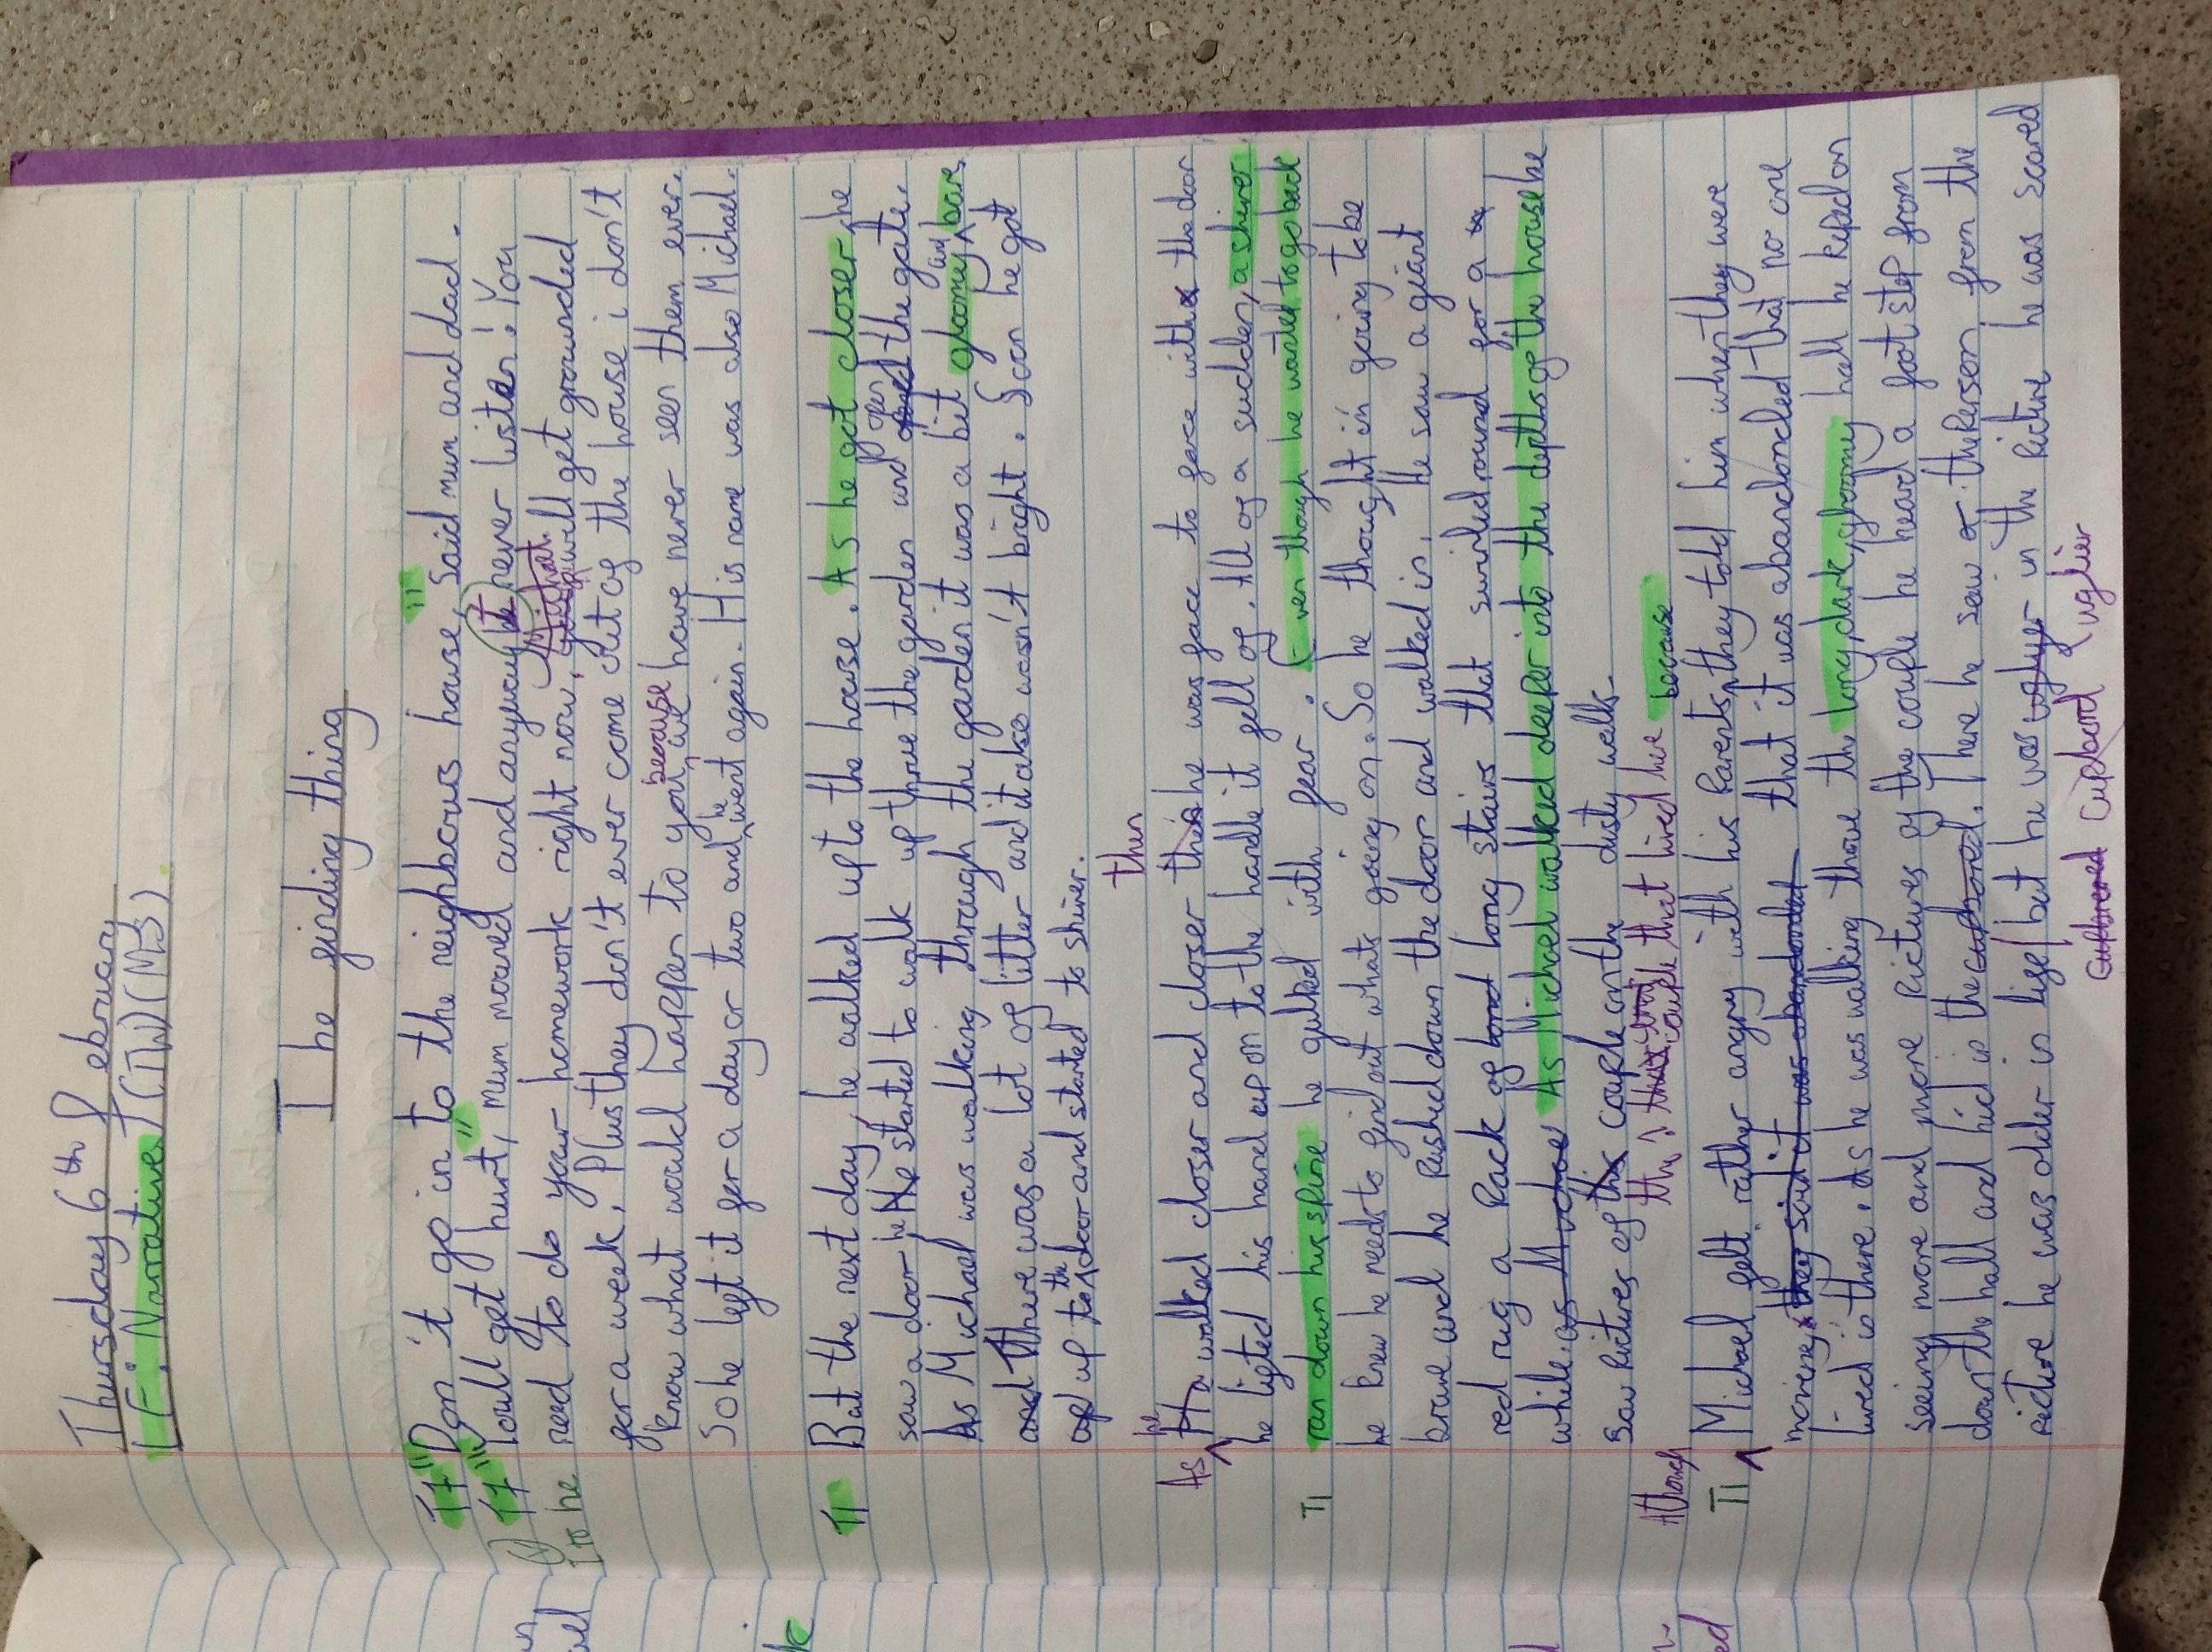 Thursday 6th February
LF: Narrative (IW) (MS).
The finding thing
T1 "Don't go in to the neighbours house," Said mum and dad.
T1 "I could get hurt", Mum moared and anyway I never listen! You
I to he
need to do your homework right now, Michael will get grounded
for a week. Plus they don't ever come out of the house i don't
know what would happen to you because we have never seen them ever.
So he left it for a day or two and he went again. His name was also Michael.
T1 But the next day, he walked up to the house. As he got closer, he
saw a door he started to walk up throe the garden and open the gate.
As Michael was walking through the garden it was a bit gloomy and bare
and there was a lot of litter and it also wasn't bright. Soon he got
up to the door and started to shiver.
then
As he walked closer and closer he was face to face with the door
he lifted his hand up on to the handle it fell of. All of a sudden, a shiver
T1 ran down his spine he gulked with fear. Even though he wanted to go back
he knew he needs to find out whats going on. So he thought im going to be
brave and he Pushed down the door and walked in. He saw a giant
red rug a Pack of long stairs that swirled round for a
while. as Michael As Michael walked deeper into the depths of the house he
saw Pictures of this couple on the dusty walls.
the, that couple that lived here because
Although
T1 Michael felt rather angry with his Parents, they told him when they were
moveing they said it was abandoned that it was abandoncled that no one
lived is there. As he was walking throe the long, dark, gloomy hall he kePed on
seeing more and more Pictures of the couple he heard a foot steP from
down the hall and hid is the cupbored. There he saw the Person from the
Picture he was older in life but he was uglyer in the Picture he was scared
cuthored cupbord uglier